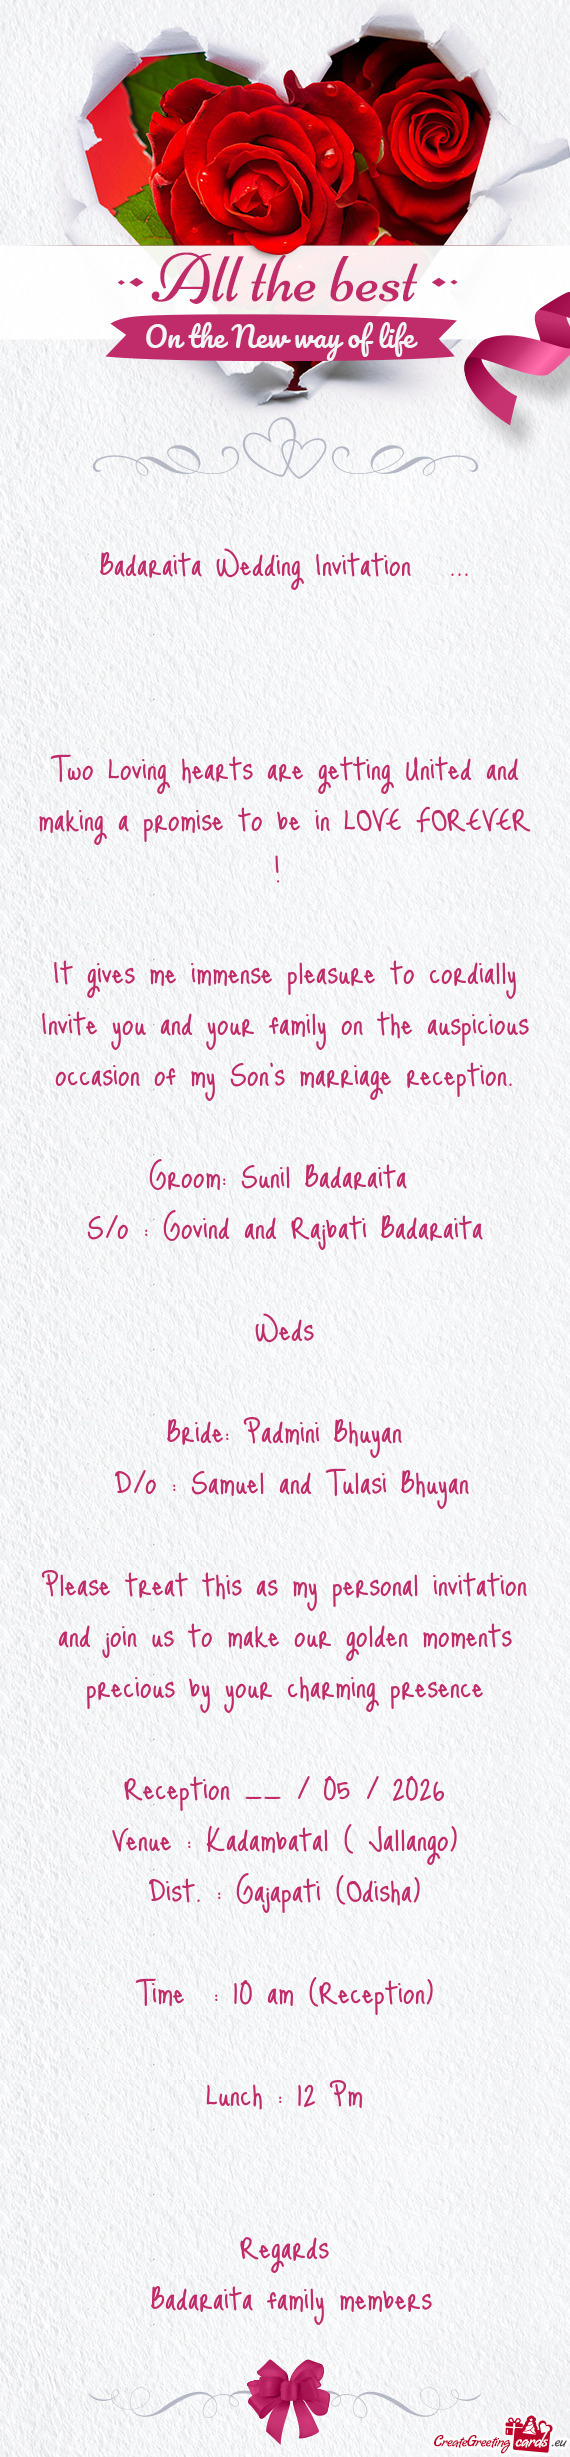 All the best
On the New way of life
Badaraita Wedding Invitation ...
Two Loving hearts are getting United and
making a promise to be in LOVE FOREVER
!
It gives me immense pleasure to cordially
Invite you and your family on the auspicious
occasion of my Son's marriage reception.
Groom: Sunil Badaraita
S/o : Govind and Rajbati Badaraita
Weds
Bride: Padmini Bhuyan
D/o : Samuel and Tulasi Bhuyan
Please treat this as my personal invitation
and join us to make our golden moments
precious by your charming presence
Reception __ / 05 / 2026
Venue : Kadambatal ( Jallango)
Dist. : Gajapati (Odisha)
Time : 10 am (Reception)
Lunch : 12 Pm
Regards
Badaraita family members
CreateGreetingcards.eu